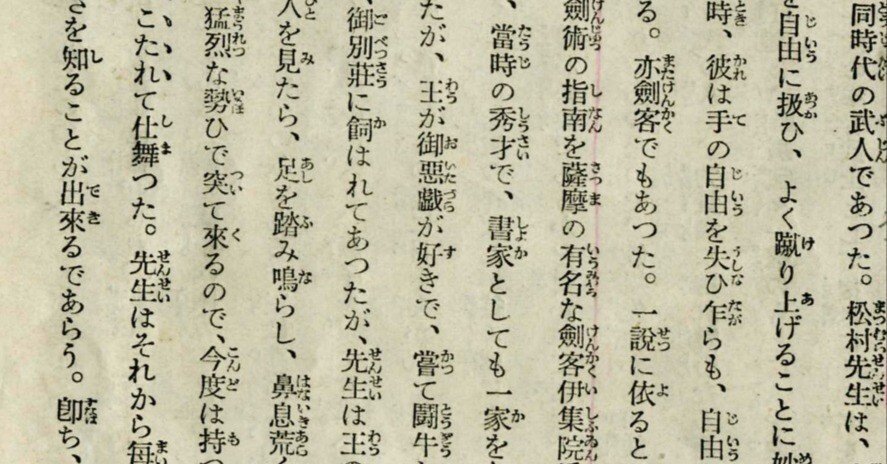 同時代の武人であつた。松村先生は、
を自由に扱ひ、よく蹴り上げることに妙
時、彼は手の自由を失ひ乍らも、自由
る。亦劍客でもあつた。一說に依ると
劍術の指南を薩摩の有名な劍客伊集院
、當時の秀才で、書家としても一家を
たが、王が御惡戲が好きで、嘗て鬪牛
、御別莊に飼はれてあつたが、先生は王の
人を見たら、足を踏み鳴らし、鼻息荒く
猛烈な勢ひで突て來るので、今度は持つ
こたれて仕舞つた。先生はそれから每
さを知ることが出來るであらう。卽ち、